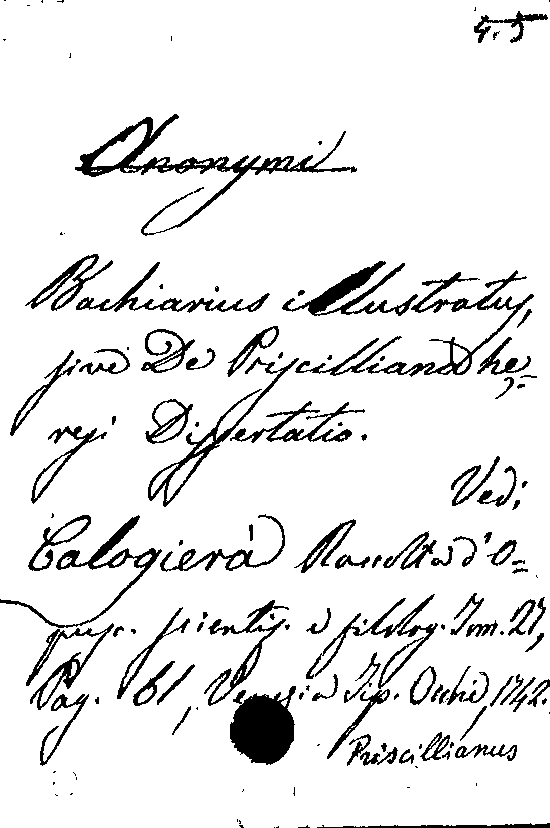 4.5
Anonymi
Bachiarius illustratus,
sive De Priscilliana he=
resi Dissertatio.
Vedi
Calogierà Raccolta d'O=
pusc. scientif. e filolog. Tom. 27,
Pag. 61, Venezia Tip. Occhi, 1742.
Priscillianus